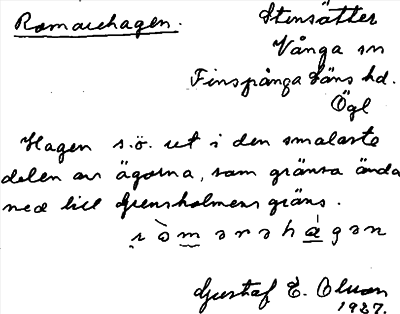 Ramarehagen.
Stensätter
Vånga sn
Finspånga läns hd.
Ögl
Hagen s.ö. ut i den smalaste
delen av ägorna, som gränsa ända
ned till Grensholmens gräns.
Gustaf E. Olsson
1937.